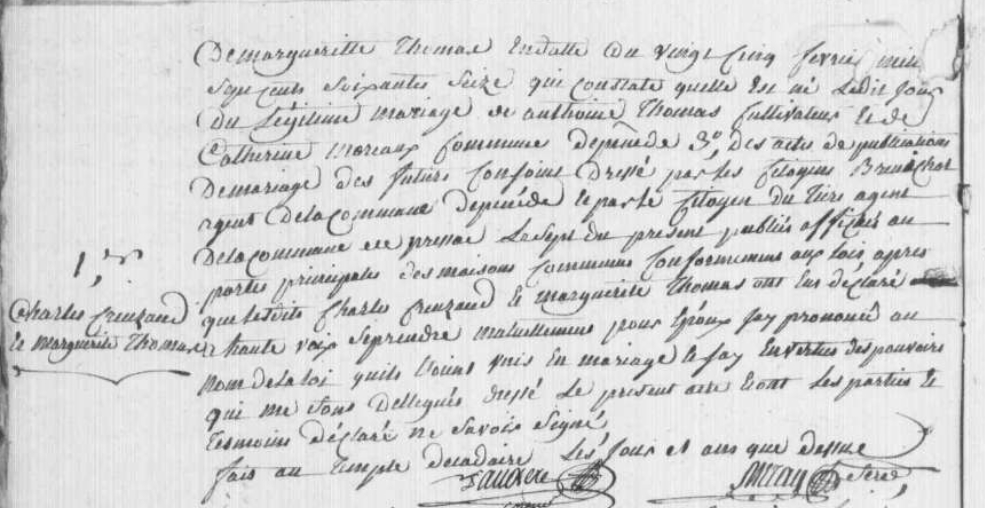 De margueritte Thomas En datte du vingt cinq fevrier mil
sept cents soixantes seize qui constate quelle Est né Ledit Jour
Du Légitime mariage de anthoine Thomas Cultivateur Et de
Catherine moreaux Commune De 3.o Des actes de publications
De mariage des futurs Conjoints Dressé par les Citoyens
agent De la Commune Et par le Citoyen agent
De la Commune de pressac Le sept du present publiés affichés au
portes principales des maisons Communes Conformement aux lois, apres
1,er
que lesdits Charles Et marguerite Thomas ont Eus déclaré
Charles
Et marguerite Thomas
a haute voix Se prendre mutuellement pour Epoux Jay prononcé au
Nom de la loi quils Etoint unis En mariage Et Jay En vertus des pouvoirs
qui me sons Dellegués dressé Le present acte Et ont Les parties Et
temoins Déclaré ne Savoir Signé
fais au Temple decadaire Les Jour et ans que dessue